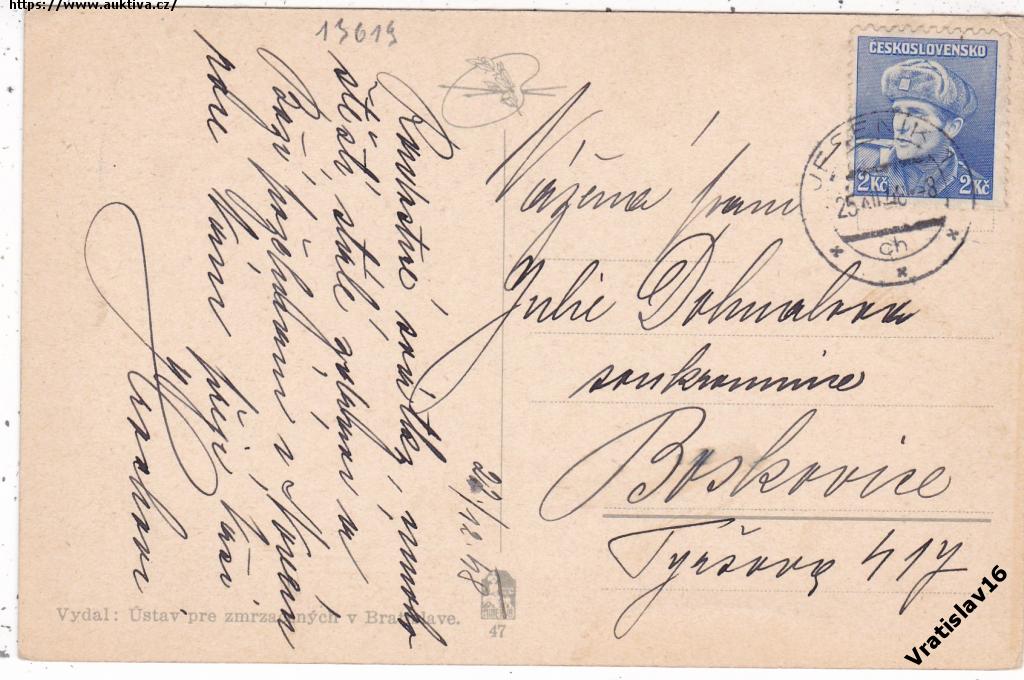 https://www.auktiva.cz/
13619
22/12 48
Radostné svátky, mnoho
štěstí stále zdraví a
Boží požehnání v Novém
roce Vám přeje Vaši
Vážená paní
Julie Dohnalova
soukromnice
Boskovice
Tyršova 417
ČESKOSLOVENSKO
2 Kčs 2 Kčs
JESENÍK 1
25.XII.48-8
ch
Vydal: Ústav pre zmrzačených v Bratislave.
47
Vratislav16